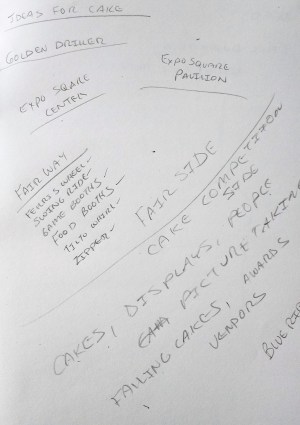 IDEAS FOR CAKE
GOLDEN DRILLER
EXPO SQARE
CENTER
EXPO SQUARE
PAVILION
FAIR WAY
FERRIS WHEEL
SWING RIDE
GAME BOOTHS
FOOD BOOTHS
TILT O WHIRL
ZIPPER
FAIR SIDE
CAKE COMPETITION
SIDE
CAKES, DISPLAYS, PEOPLE
PICTURE TAKING
FALLING CAKES, AWARDS
VENDORS
BLUE